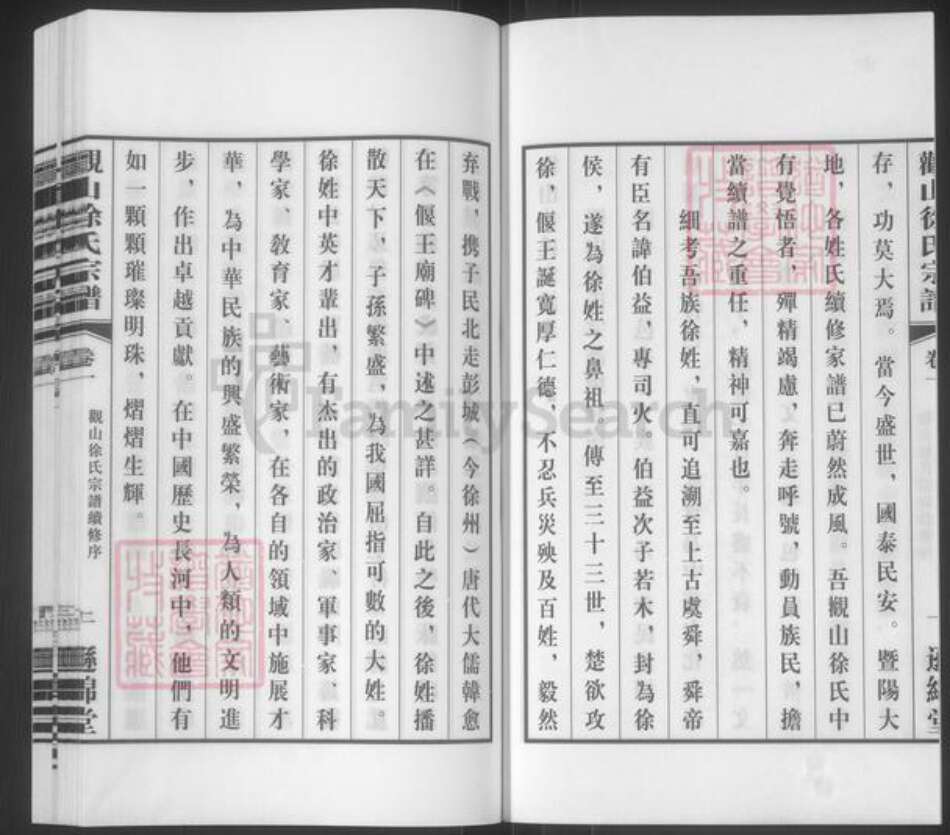 觀山徐氏宗譜
卷一
存，功莫大焉。當今盛世，國泰民安。暨陽大
地，各姓氏續修家譜已蔚然成風。吾觀山徐氏中
有覺悟者，殫精竭慮，奔走呼號，動員族民，擔
當續譜之重任，精神可嘉也。
細考吾族徐姓，直可追溯至上古虞舜，舜帝
有臣名諱伯益，專司火。伯益次子若木，封為徐
侯，遂為徐姓之鼻祖。傳至三十三世，楚欲攻
徐，偃王誕寬厚仁德，不忍兵災殃及百姓，毅然
弃戰，携子民北走彭城（今徐州）唐代大儒韓愈
在《偃王廟碑》中述之甚詳。自此之後，徐姓播
散天下，子孫繁盛，為我國屈指可數的大姓。
徐姓中英才輩出，有杰出的政治家、軍事家、科
學家、教育家、藝術家，在各自的領域中施展才
華，為中華民族的興盛繁榮，為人類的文明進
步，作出卓越貢獻。在中國歷史長河中，他們有
如一顆顆璀璨明珠，熠熠生輝。
觀山徐氏宗譜
卷一
觀山徐氏宗譜續修序
二
錦堂
FamilySearch